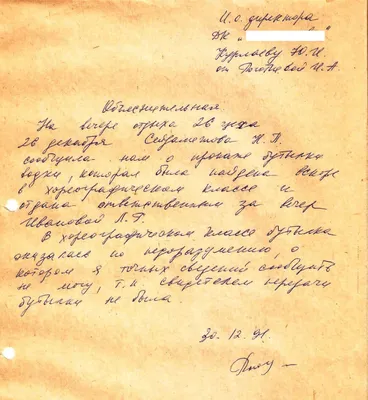 И.о. директора
ДК "
Курлаеву Ю.И.
от И.А
Объяснительная.
На вечере отдыха 26 цеха
26 декабря Сейраметова Н.П.
сообщила нам о пропаже бутылки
водки, которая была найдена вскоре
в хореографическом классе и
отдана ответственным за вечер
Ивановой Л.Г.
В хореографическом классе бутылка
оказалась по недоразумению, о
котором я точных сведений сообщить
не могу, т.к. свидетелем передачи
бутылки не была.
30.12.91.